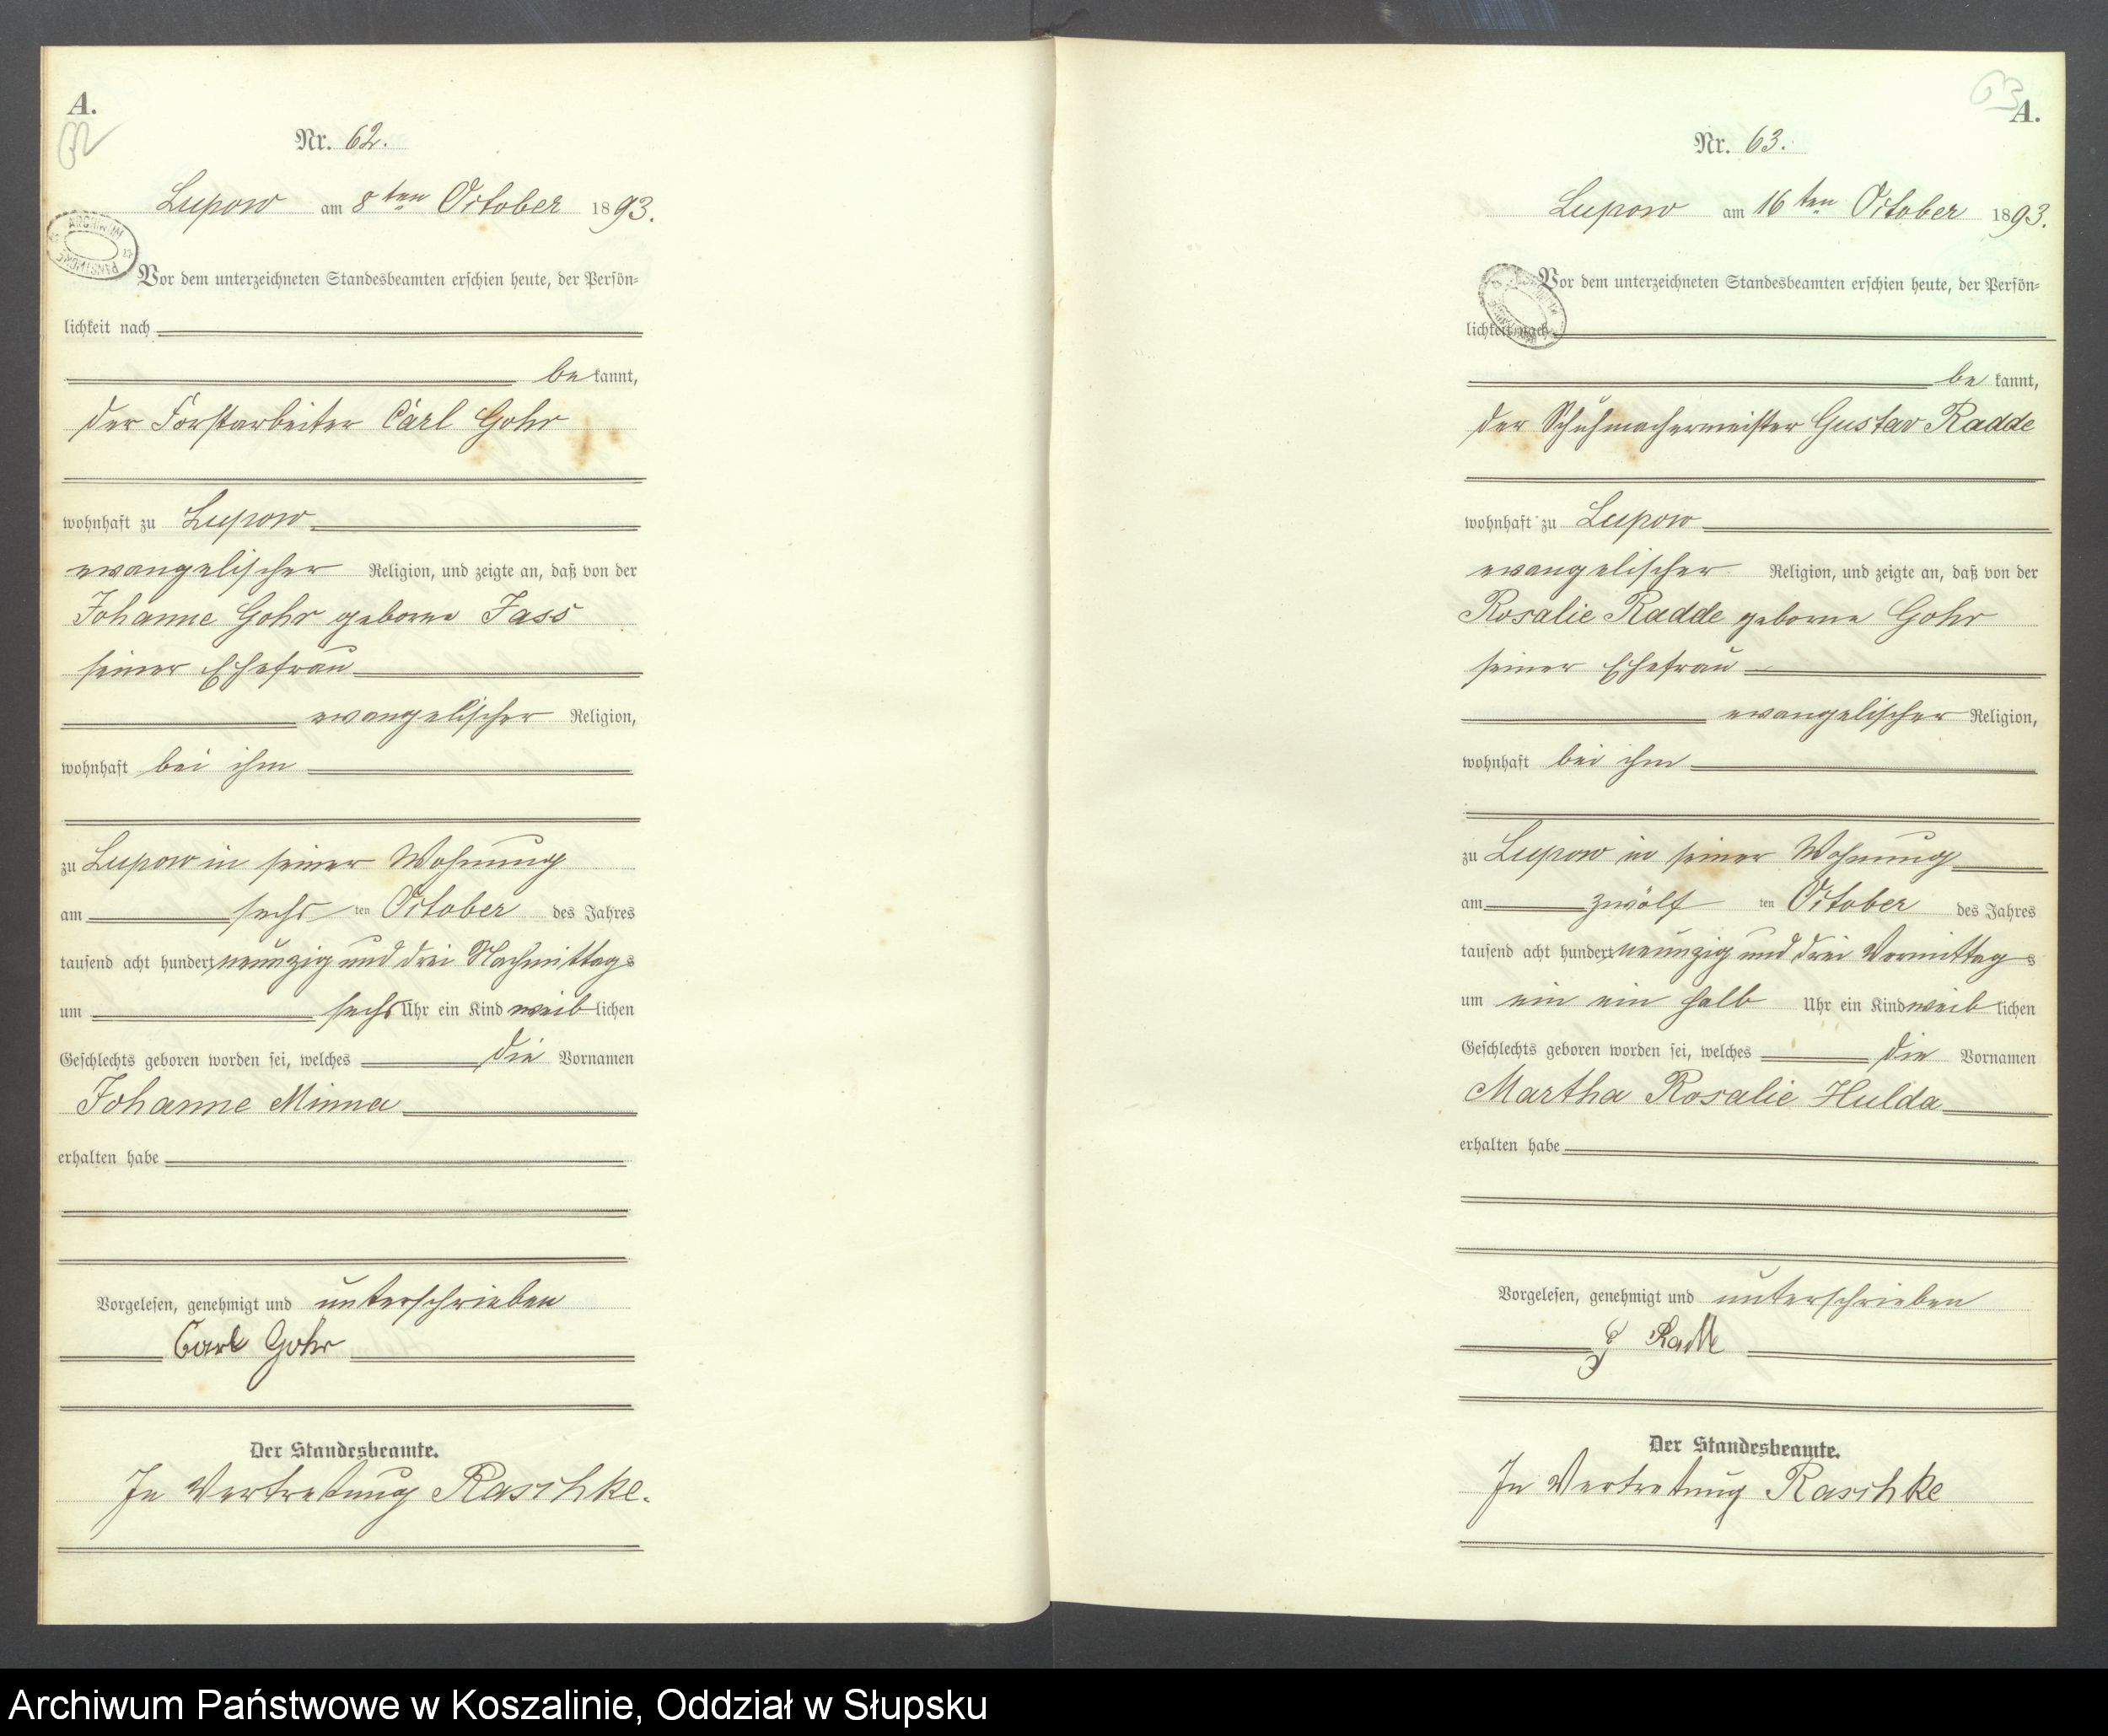 A.
62
Nr. 62.
Lupow am 8ten October 1893.
ARCHIWUM PAŃSTWOWE
Vor dem unterzeichneten Standesbeamten erschien heute, der Persön-
lichkeit nach
be kannt,
der Forstarbeiter Carl Gohr
wohnhaft zu Lupow
evangelischer Religion, und zeigte an, daß von der
Johanne Gohr geborne Jass
seiner Ehefrau
evangelischer Religion,
wohnhaft bei ihm
zu Lupow in seiner Wohnung
am sechs ten October des Jahres
tausend acht hundert neunzig und drei Nachmittags
um sechs Uhr ein Kind weib lichen
Geschlechts geboren worden sei, welches die Vornamen
Johanne Minna
erhalten habe
Vorgelesen, genehmigt und unterschrieben
Carl Gohr
Der Standesbeamte.
In Vertretung Raschke.
63
A.
Nr. 63.
Lupow am 16ten October 1893.
Vor dem unterzeichneten Standesbeamten erschien heute, der Persön-
lichkeit nach
be kannt,
der Schuhmachermeister Gustav Radde
wohnhaft zu Lupow
evangelischer Religion, und zeigte an, daß von der
Rosalie Radde geborne Gohr
seiner Ehefrau
evangelischer Religion,
wohnhaft bei ihm
zu Lupow in seiner Wohnung
am zwölf ten October des Jahres
tausend acht hundert neunzig und drei Vormittags
um ein ein halb Uhr ein Kind weib lichen
Geschlechts geboren worden sei, welches die Vornamen
Martha Rosalie Hulda
erhalten habe
Vorgelesen, genehmigt und unterschrieben
G Radde
Der Standesbeamte.
In Vertretung Raschke
Archiwum Państwowe w Koszalinie, Oddział w Słupsku